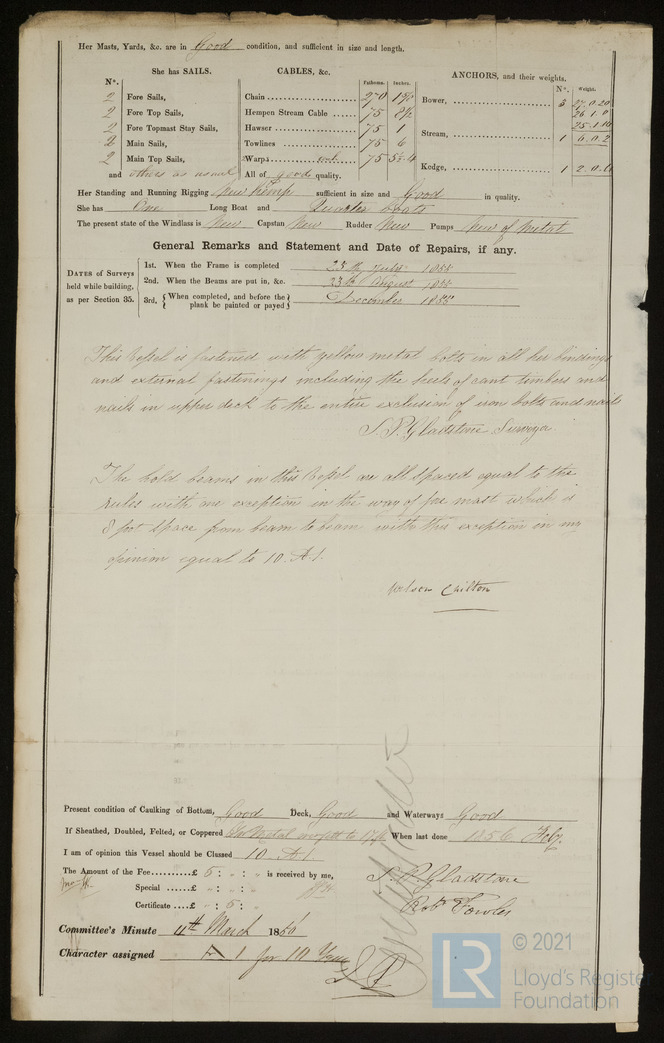 Her Masts, Yards, &c. are in Good condition, and sufficient in size and length.
She has SAILS.
CABLES, &c.
ANCHORS, and their weights.
N°.
Fathoms. Inches.
N°. Weight.
2 Fore Sails,
2 Fore Top Sails,
2 Fore Topmast Stay Sails,
2 Main Sails,
2 Main Top Sails,
and others as usual
Chain 270
Hempen Stream Cable 75 8½
Hawser 75 1
Towlines 75 6
Warps 75
All of good quality.
Bower, 3 27.0.20
26.1.0
25.1.10
Stream, 1 6.0.2
Kedge, 1 2.0.
Her Standing and Running Rigging New Hemp sufficient in size and Good in quality.
She has One Long Boat and Quarter boats
The present state of the Windlass is New Capstan New Rudder New Pumps New of Metal
General Remarks and Statement and Date of Repairs, if any.
DATES of Surveys held while building, as per Section 35.
1st. When the Frame is completed 23th July 1855
2nd. When the Beams are put in, &c. 23th August 1855
3rd. { When completed, and before the plank be painted or payed } December 1855
This Vessel is fastened with yellow metal bolts in all her bindings
and external fastenings including the heels of cant timbers and
nails in upper deck to the entire exclusion of iron bolts and nails
S. P. Gladstone Surveyor
The hold beams in this Vessel are all spaced equal to the
rules with one exception in the way of fore mast which is
8 foot space from beam to beam with this exception in my
opinion equal to 10 A.1.
Wilson Chilton
Present condition of Caulking of Bottom, Good Deck, Good and Waterways Good
If Sheathed, Doubled, Felted, or Coppered When last done 1856 Feby.
I am of opinion this Vessel should be Classed 10 A1.
The Amount of the Fee £ 5 : " : " is received by me,
Special £ " : " : "
Certificate £ " : 5 : "
S. P. Gladstone
Robt Fowler
Committee's Minute 4th March 1856
Character assigned A 1 for 10 Years
© 2021
LR
Lloyd's Register
Foundation